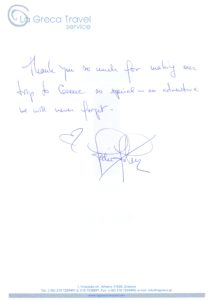 La Greca Travel
service
Thank you so much for making our
trip to Greece so special — an adventure
we will never forget.